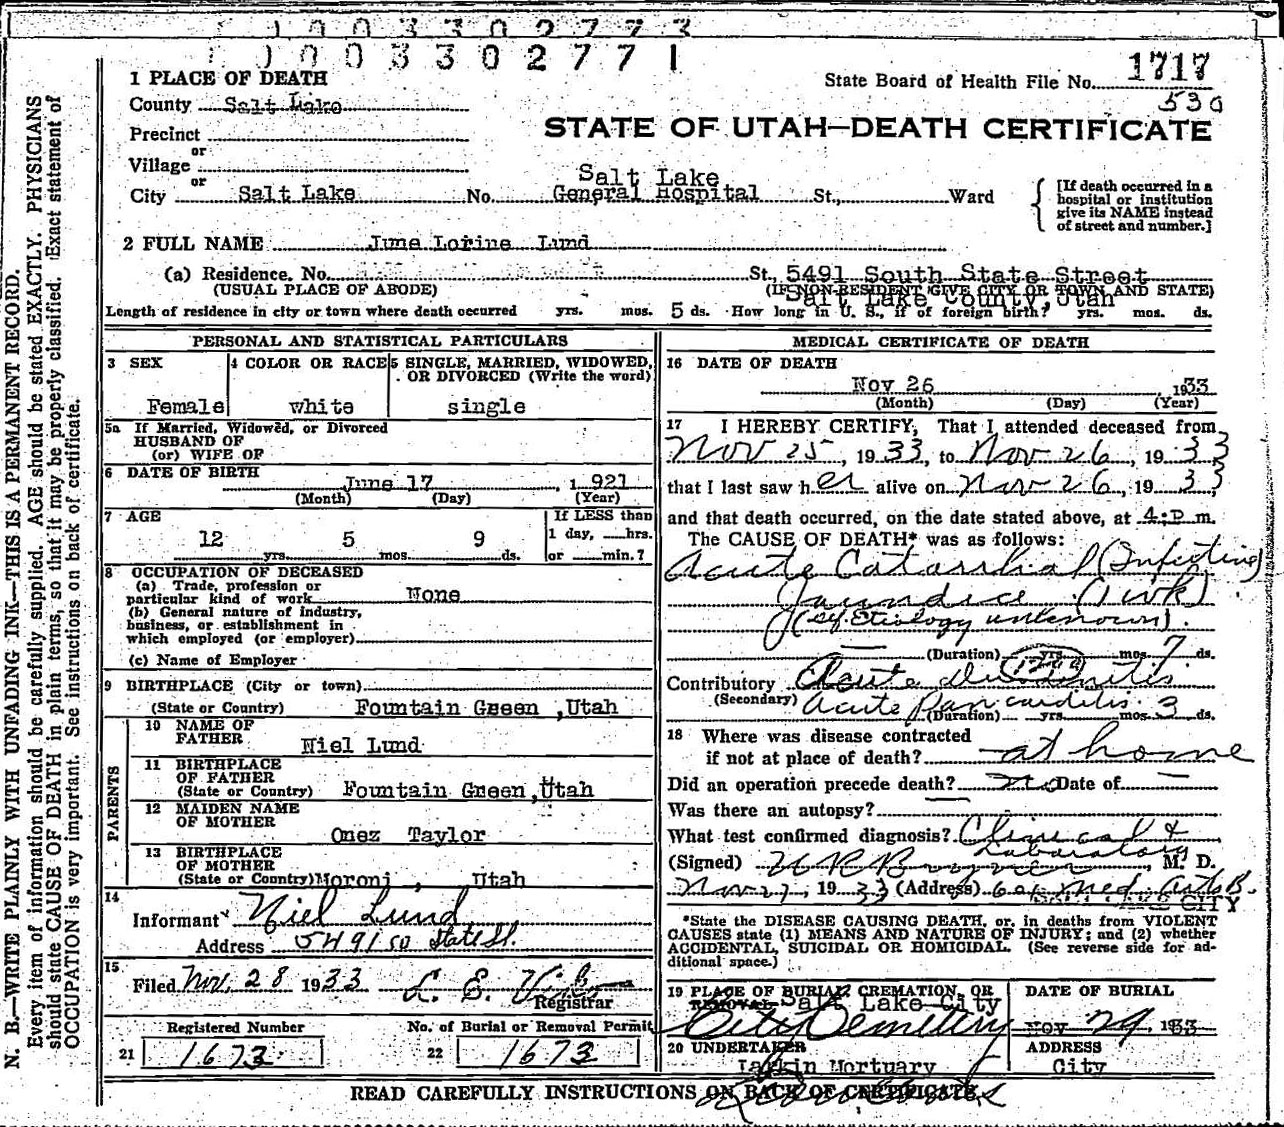 1 0 0 3 3 0 2 7 7 3
1 0 0 3 3 0 2 7 7 1
State Board of Health File No. 1717
530
STATE OF UTAH—DEATH CERTIFICATE
1 PLACE OF DEATH
County Salt Lake
Precinct
or
Village
or
City Salt Lake No. Salt Lake General Hospital St., Ward
[If death occurred in a
hospital or institution
give its NAME instead
of street and number.]
2 FULL NAME June Lorine Lund
(a) Residence. No. St., 5491 South State Street
(USUAL PLACE OF ABODE) (IF NON-RESIDENT GIVE CITY OR TOWN AND STATE)
Salt Lake County, Utah
Length of residence in city or town where death occurred yrs. mos. 5 ds. How long in U. S., if of foreign birth? yrs. mos. ds.
PERSONAL AND STATISTICAL PARTICULARS
3 SEX
Female
4 COLOR OR RACE
white
5 SINGLE, MARRIED, WIDOWED,
OR DIVORCED (Write the word)
single
5a If Married, Widowed, or Divorced
HUSBAND OF
(or) WIFE OF
6 DATE OF BIRTH
June 17, 1921
(Month) (Day) (Year)
7 AGE
12 yrs. 5 mos. 9 ds.
If LESS than
1 day, hrs.
or min.?
8 OCCUPATION OF DECEASED
(a) Trade, profession or
particular kind of work None
(b) General nature of industry,
business, or establishment in
which employed (or employer)
(c) Name of Employer
9 BIRTHPLACE (City or town)
(State or Country) Fountain Green ,Utah
PARENTS
10 NAME OF
FATHER Niel Lund
11 BIRTHPLACE
OF FATHER
(State or Country) Fountain Green ,Utah
12 MAIDEN NAME
OF MOTHER
Onez Taylor
13 BIRTHPLACE
OF MOTHER
(State or Country) Moroni , Utah
14
Informant Niel Lund
Address 5491 So State St.
15
Filed Nov. 28 1933 L. E.
Registrar
Registered Number
21 1673
No. of Burial or Removal Permit
22 1673
MEDICAL CERTIFICATE OF DEATH
16 DATE OF DEATH
Nov 26 1933
(Month) (Day) (Year)
17 I HEREBY CERTIFY, That I attended deceased from
Nov 25, 1933, to Nov 26, 1933
that I last saw her alive on Nov 26, 1933,
and that death occurred, on the date stated above, at 4:P m.
The CAUSE OF DEATH* was as follows:
Acute Catarrhal
Jaundice (1 wk)
(of Etiology unknown).
(Duration) yrs. mos. 7 ds.
Contributory Acute
(Secondary) Acute Pancarditis
(Duration) yrs. mos. 3 ds.
18 Where was disease contracted
if not at place of death? at home
Did an operation precede death? no Date of —
Was there an autopsy? —
What test confirmed diagnosis? Clinical &
Laboratory
(Signed) M. D.
Nov 27, 1933 (Address) Med. Arts B.
SALT LAKE CITY
*State the DISEASE CAUSING DEATH, or, in deaths from VIOLENT
CAUSES state (1) MEANS AND NATURE OF INJURY; and (2) whether
ACCIDENTAL, SUICIDAL OR HOMICIDAL. (See reverse side for ad-
ditional space.)
19 PLACE OF BURIAL, CREMATION, OR
REMOVAL Salt Lake City
City Cemetery
DATE OF BURIAL
Nov 29, 1933
20 UNDERTAKER
Larkin Mortuary
ADDRESS
City
READ CAREFULLY INSTRUCTIONS ON BACK OF CERTIFICATE.
N. B.—WRITE PLAINLY WITH UNFADING INK—THIS IS A PERMANENT RECORD.
Every item of information should be carefully supplied. AGE should be stated EXACTLY. PHYSICIANS
should state CAUSE OF DEATH in plain terms, so that it may be properly classified. Exact statement of
OCCUPATION is very important. See instructions on back of certificate.